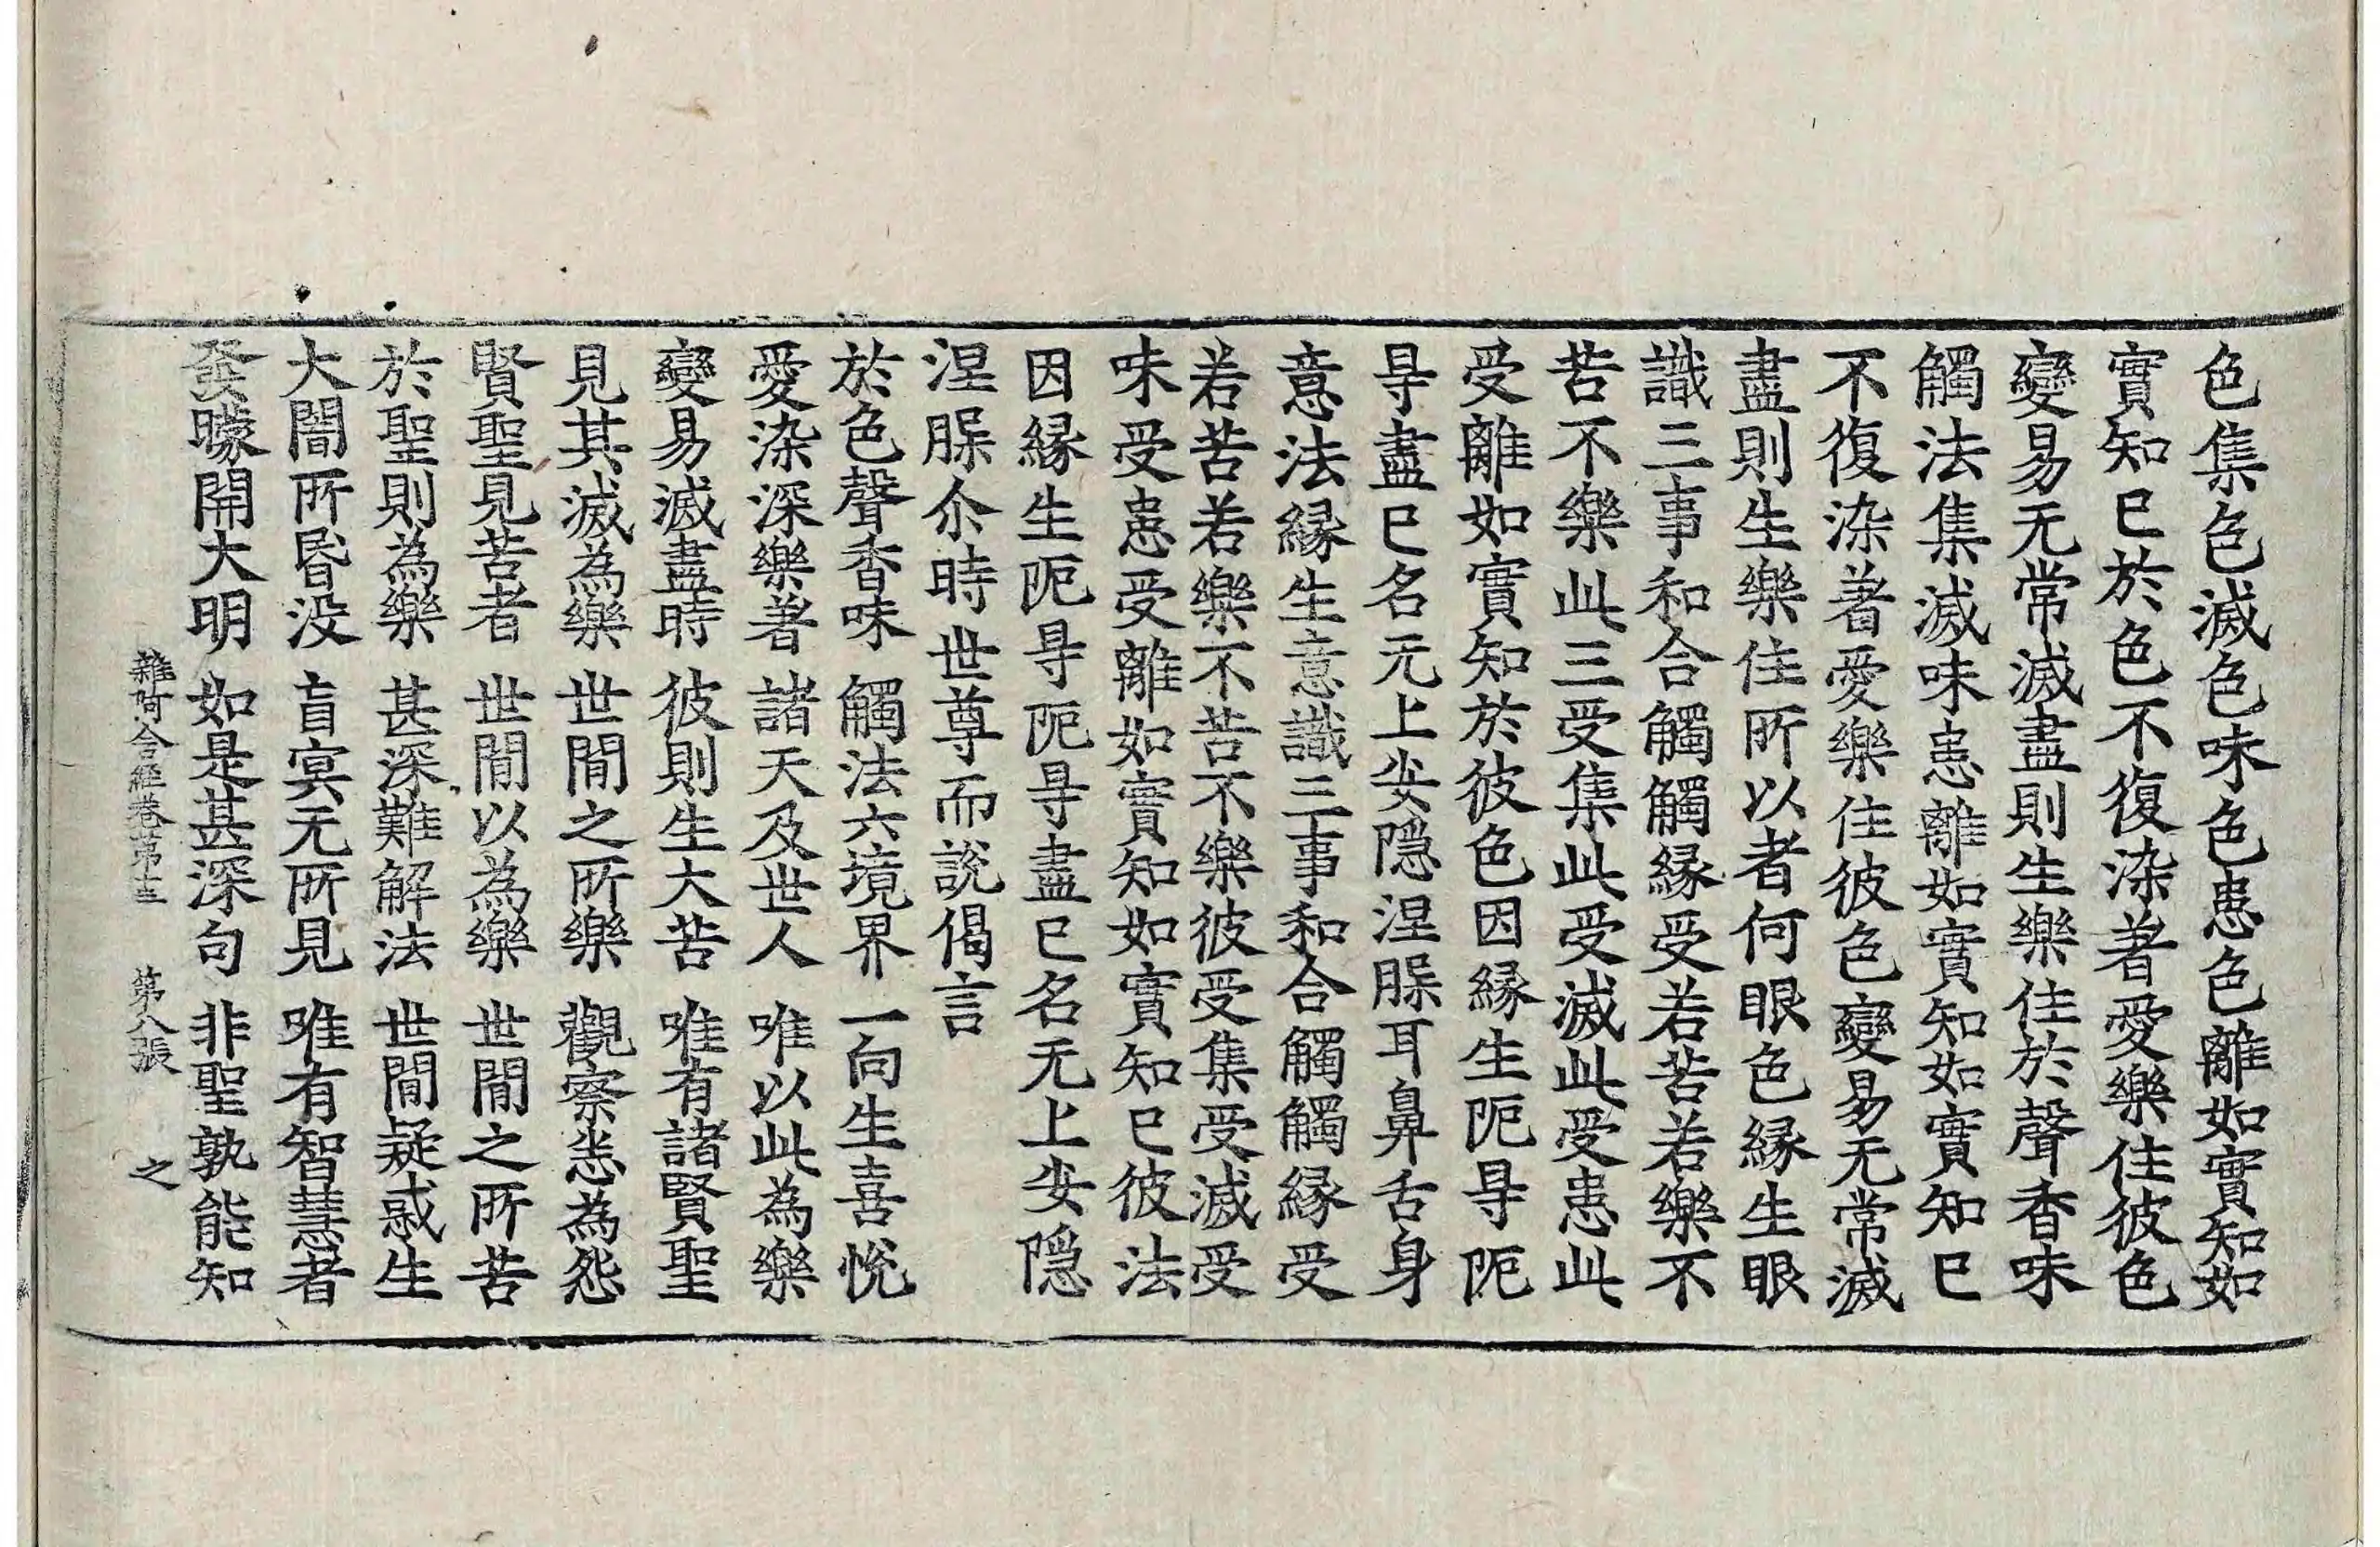 色集色滅色味色患色離如實知如
實知已於色不復染著愛樂住彼色
變易无常滅盡則生樂住於聲香味
觸法集滅味患離如實知如實知已
不復染著愛樂住彼色變易无常滅
盡則生樂住所以者何眼色緣生眼
識三事和合觸觸緣受若苦若樂不
苦不樂此三受集此受滅此受患此
受離如實知於彼色因緣生阨㝵阨
㝵盡已名无上安隱涅脲耳鼻舌身
意法緣生意識三事和合觸觸緣受
若苦若樂不苦不樂彼受集受滅受
味受患受離如實知如實知已彼法
因緣生阨㝵阨㝵盡已名无上安隱
涅脲尒時世尊而說偈言
於色聲香味　觸法六境界　一向生喜悅
愛染深樂著　諸天及世人　唯以此為樂
變易滅盡時　彼則生大苦　唯有諸賢聖
見其滅為樂　世間之所樂　觀察悉為怨
賢聖見苦者　世間以為樂　世間之所苦
於聖則為樂　甚深難解法　世間疑惑生
大闇所昬没　盲冥无所見　唯有智慧者
發矇開大明　如是甚深句　非聖孰能知
雜阿含經卷第十三　第八張　之